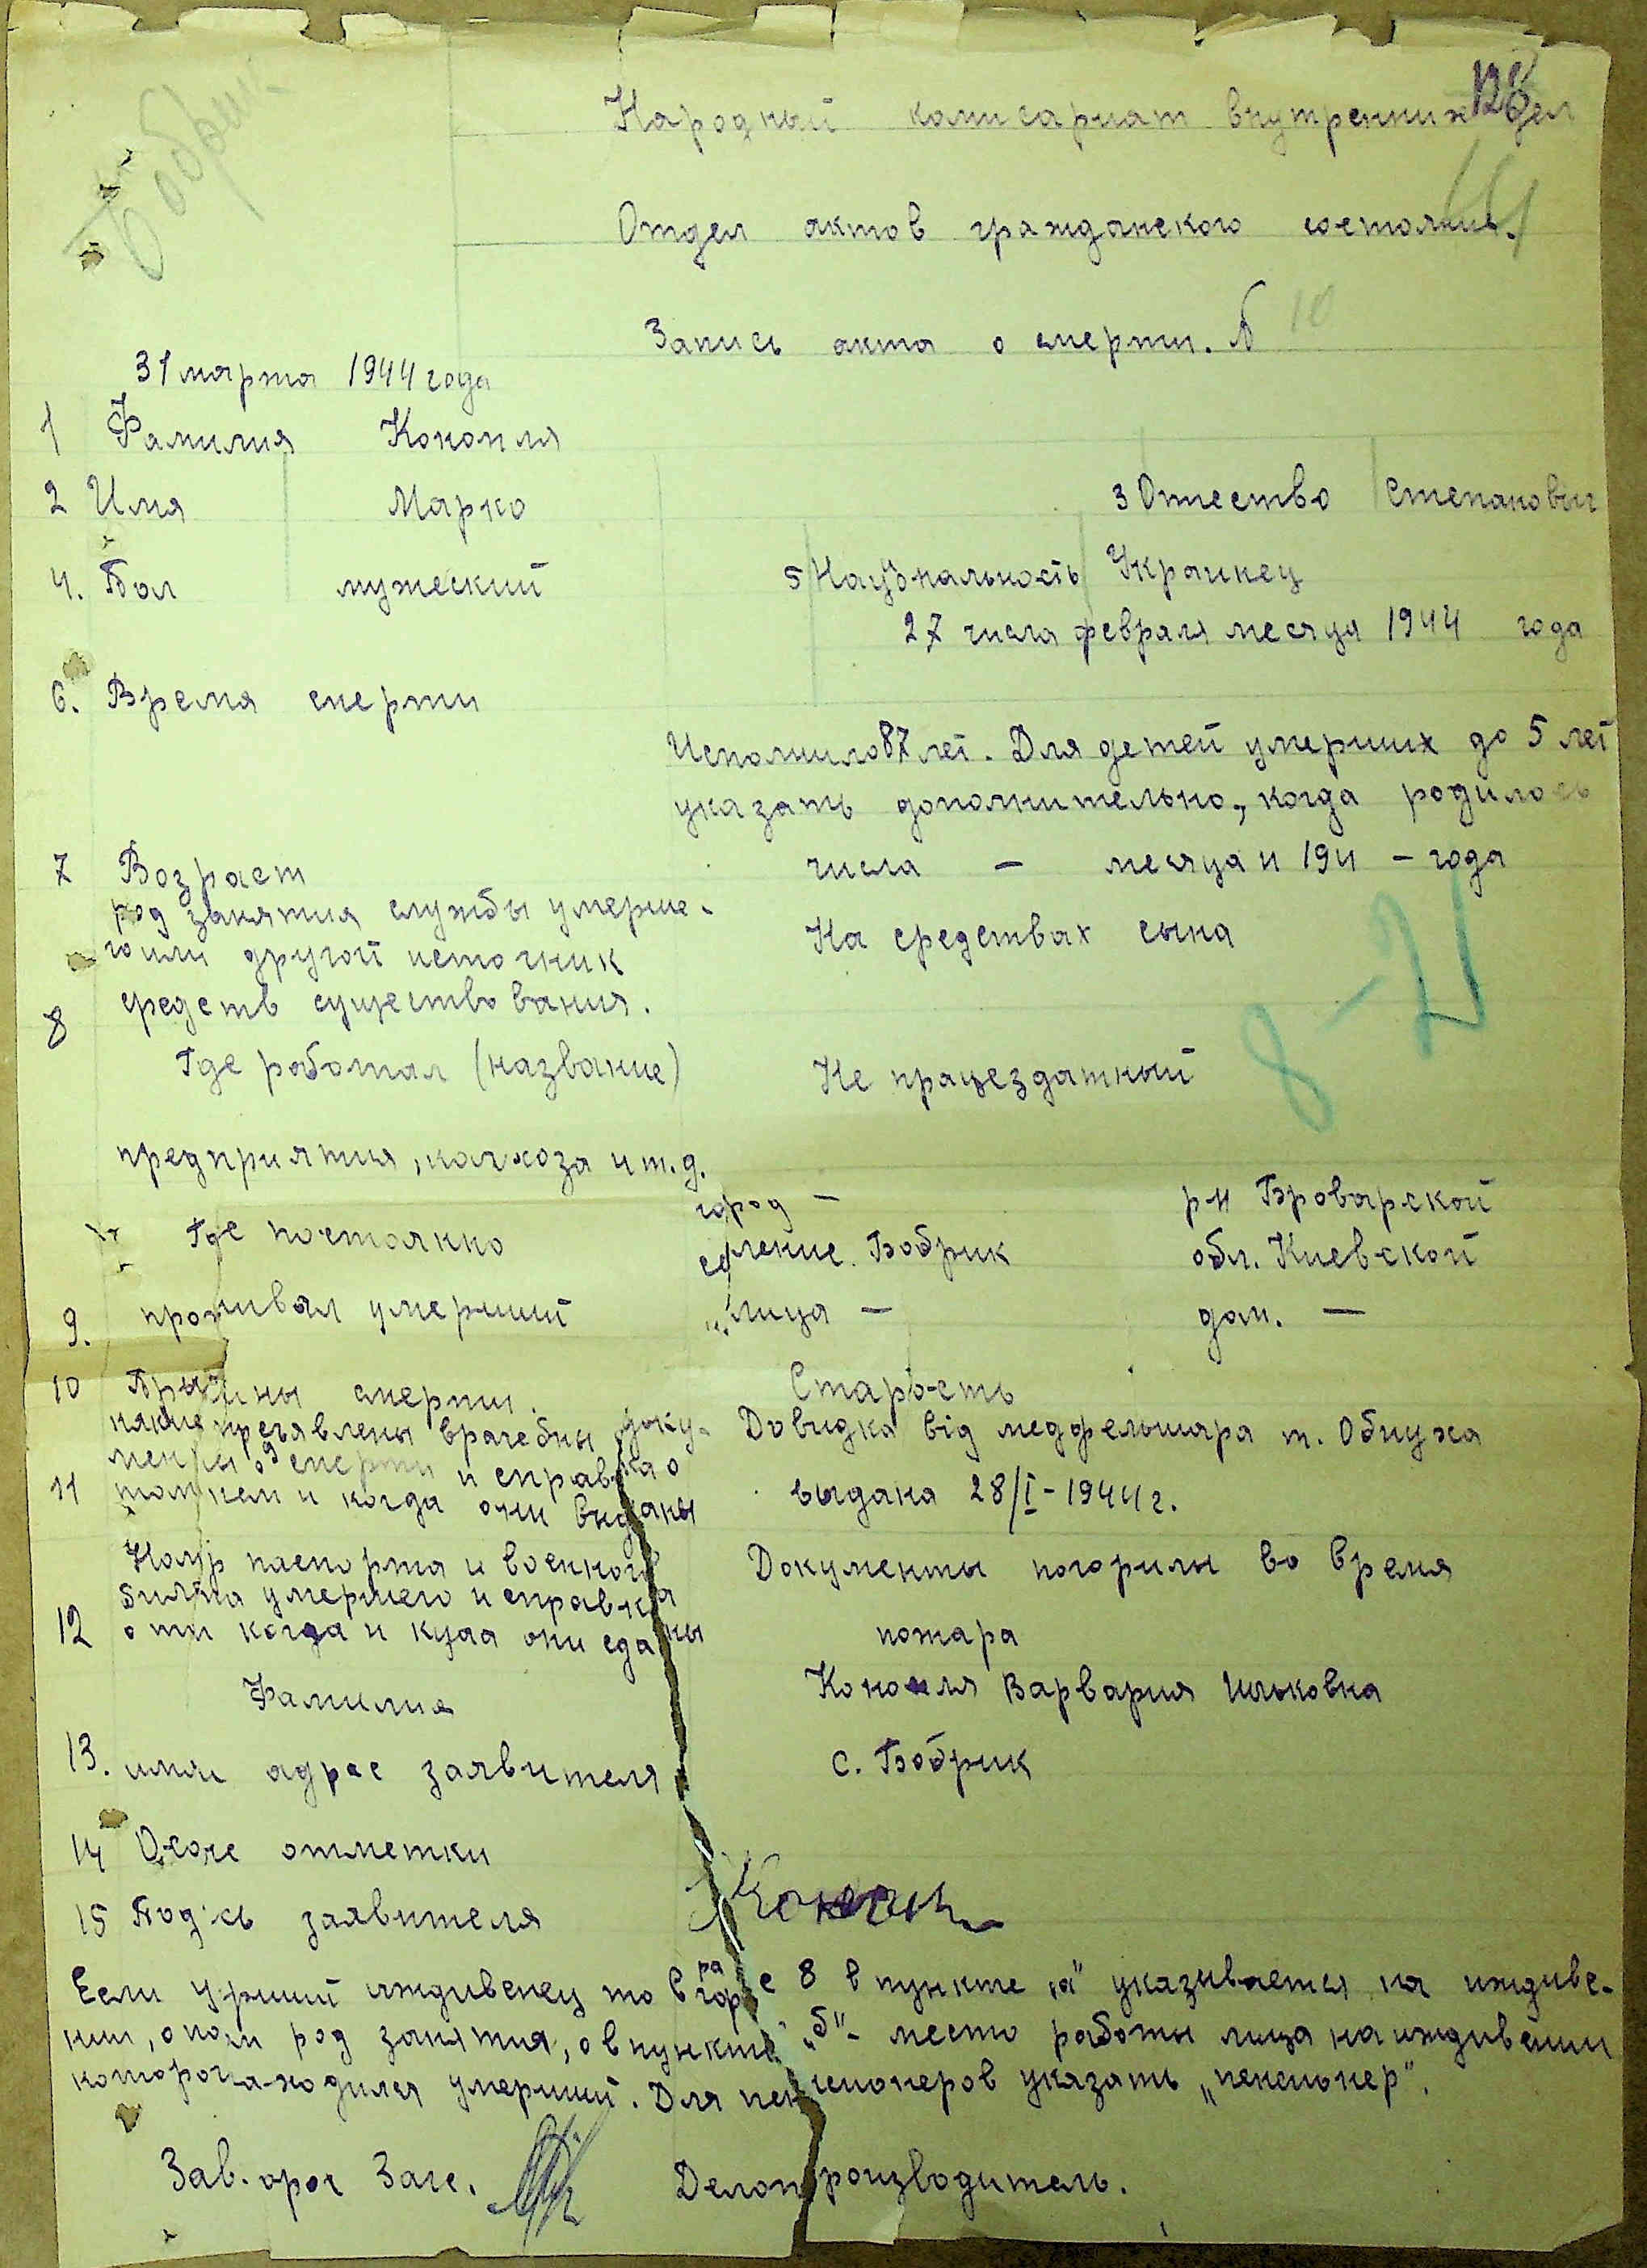 Бобрик
Народный комисариат внутренних дел
Отдел актов гражданского состояния.
Запись акта о смерти. № 10
31 марта 1944 года
1 Фамилия Конопля
2 Имя Марко 3 Отчество Степанович
4. Пол мужеский 5 Национальность Украинец
27 числа февраля месяца 1944 года
6. Время смерти
Исполнило 87 лет. Для детей умерших до 5 лет
указать дополнительно, когда родилось
7 Возраст числа – месяца и 194 – года
род занятия службы умерше-
го или другой источник На средствах сына
8 средств существования.
8-2
Где работал (название) Не працездатный
предприятия, колхоза и т.д.
город – р-н Броварской
Где постоянно селение. Бобрик обл. Киевской
9. проживал умерший улица – дом. –
10 Причины смерти. Старость
какие предъявлены врачебны доку- Довидка від медфельшара т. Обнужа
менты о смерти и справка о
11 том кем и когда они выданы выдана 28/I-1944 г.
Номер паспорта и военного Документы погорилы во время
билета умершего и справка
12 о том когда и куда они сданы пожара
Фамилия Конопля Варвария Ильковна
13. имя и адрес заявителя с. Бобрик
14 Особе отметки
15 Подпись заявителя
Если умерший иждивенец то в графе 8 в пункте „а" указывается на иждиве-
нии, о ком род занятия, а в пункте „б"- место работы лица на иждивении
которого находился умерший. Для пенсионеров указать „пенсионер".
Зав. орог Загс. Делопроизводитель.